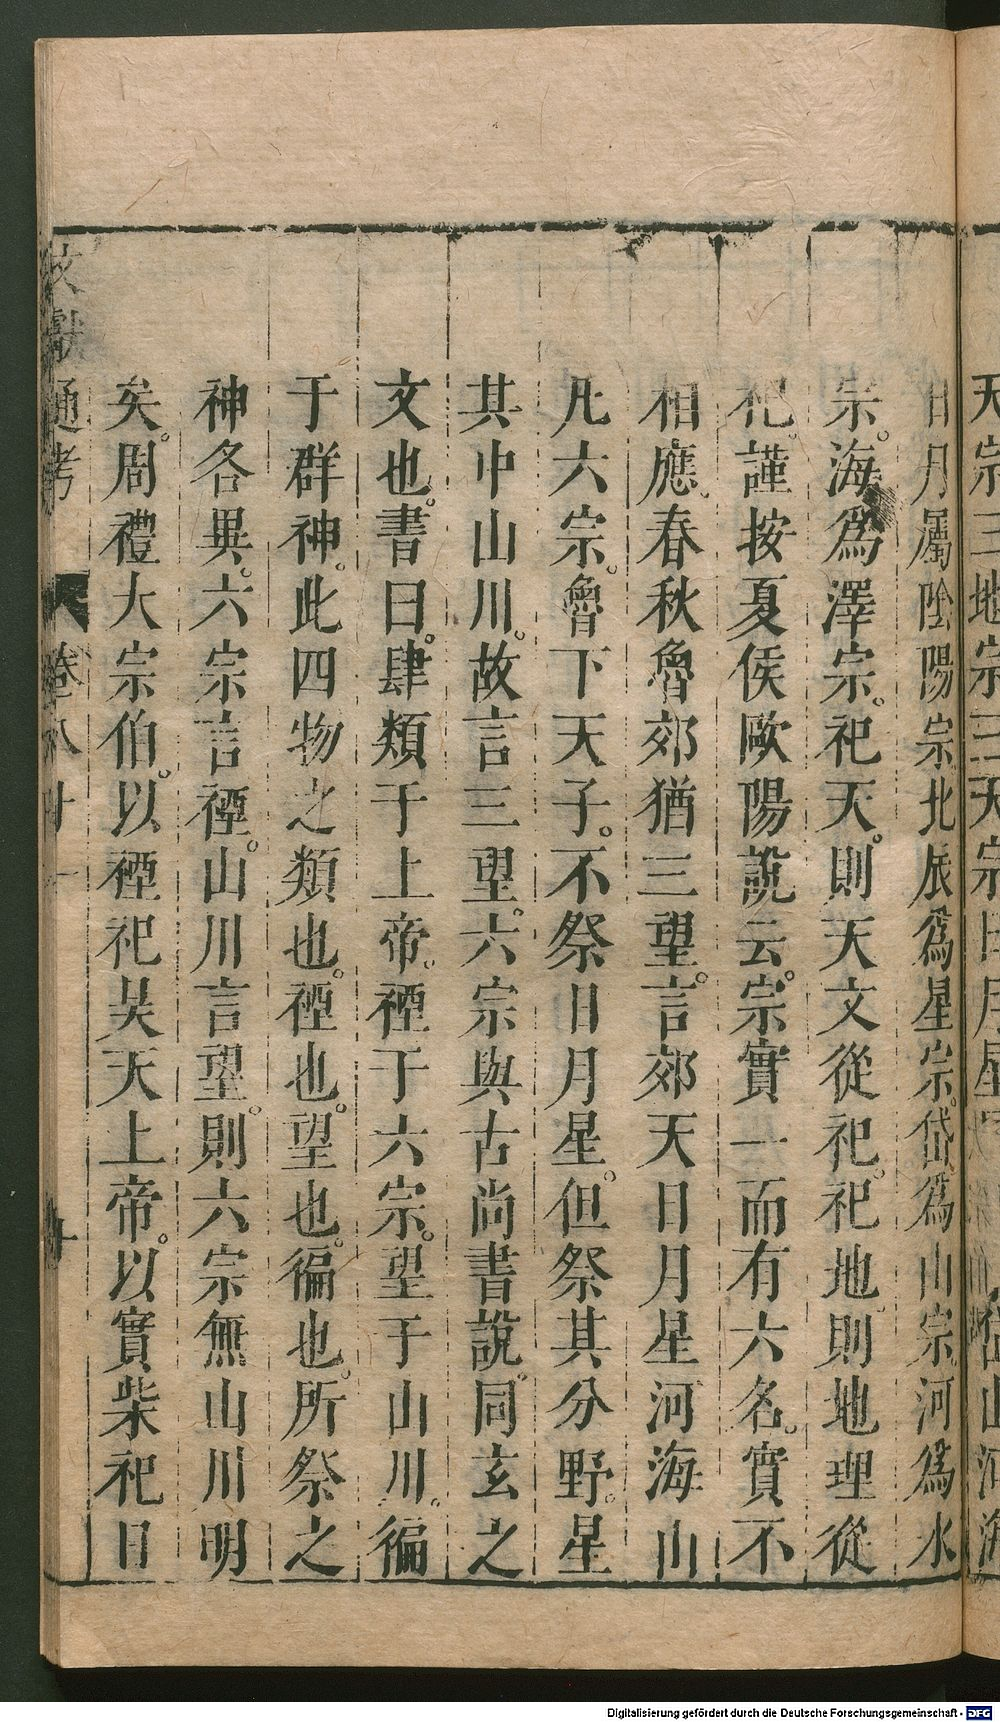 天宗三地宗三天宗日月星
日月屬陰陽宗北辰爲星宗。岱爲山宗。河爲水
宗。海爲澤宗。祀天。則天文從祀。祀地。則地理從
祀。謹按夏侯歐陽說云。宗實一而有六名。實不
相應。春秋魯郊猶三望。言郊天日月星河海山
凡六宗。魯下天子。不祭日月星。但祭其分野。星
其中山川。故言三望。六宗與古尚書說。同玄之
文也。書曰。肆類于上帝。禋于六宗。望于山川。徧
于群神。此四物之類也。禋也。望也。徧也。所祭之
神各異。六宗言禋。山川言望。則六宗無山川明
矣。周禮大宗伯。以禋祀昊天上帝。以實柴祀日
文獻通考 卷八十一 十
Digitalisierung gefördert durch die Deutsche Forschungsgemeinschaft - DFG